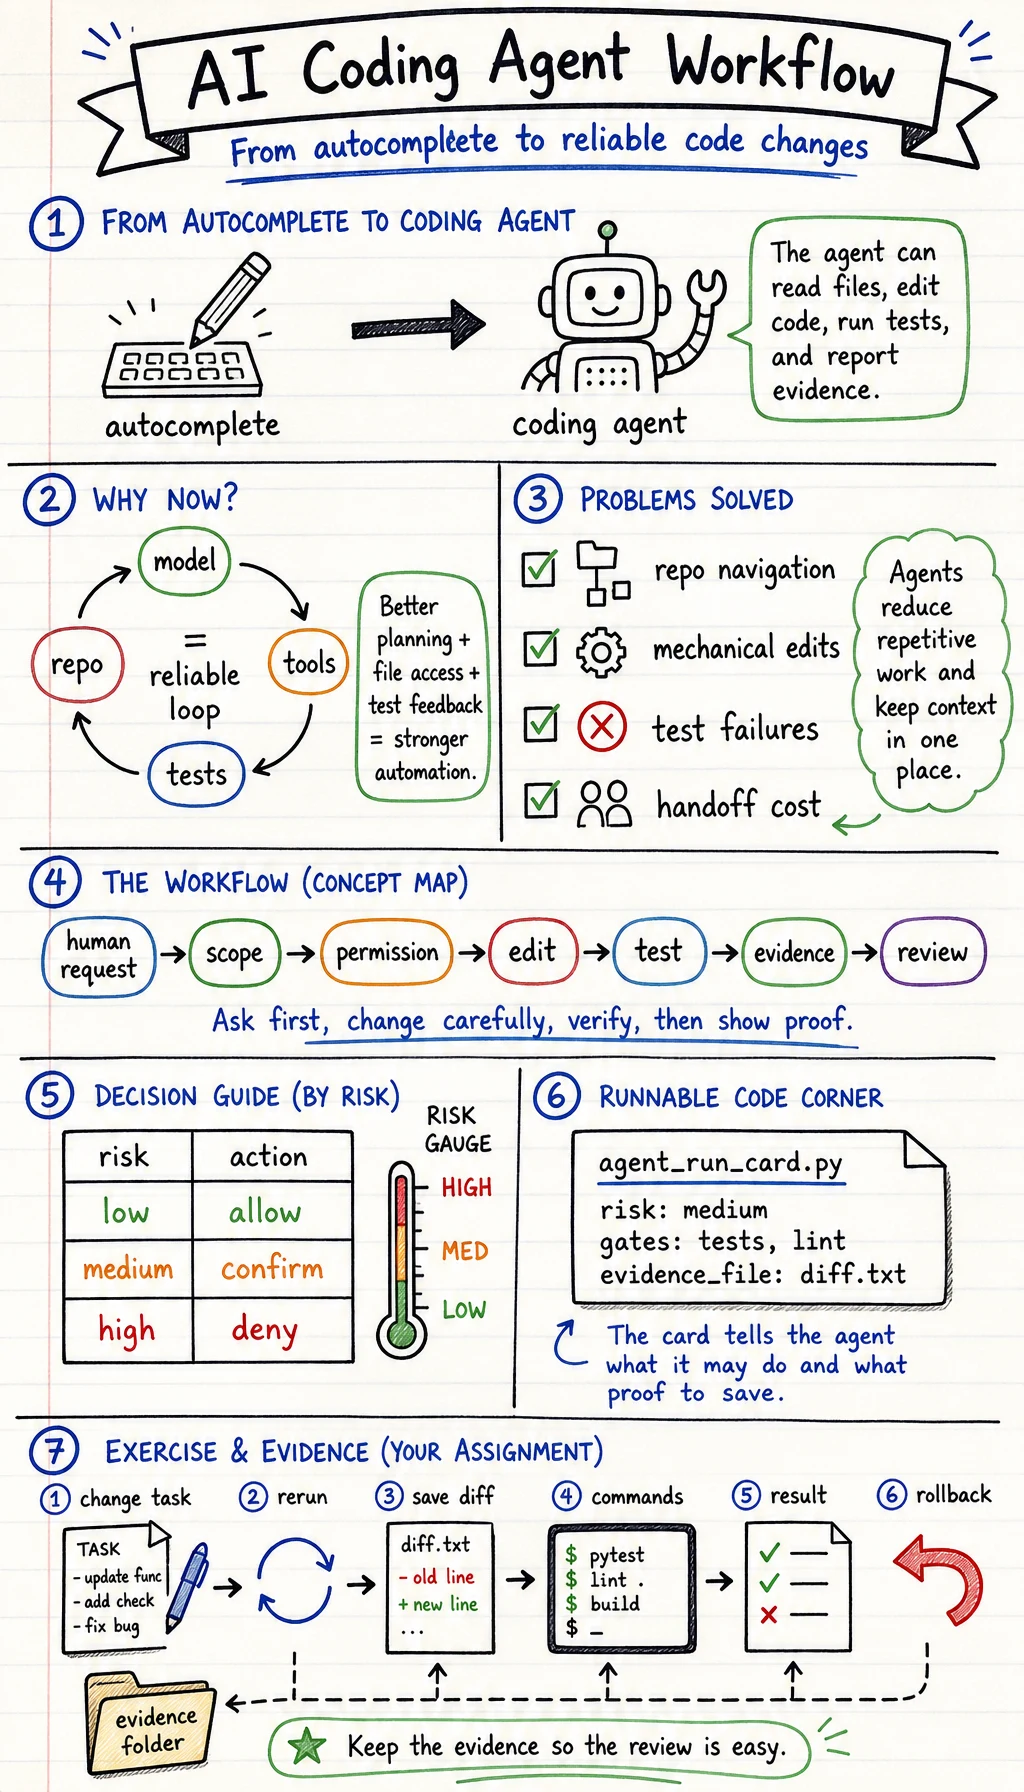 AI Coding Agent Workflow
From autocomplete to reliable code changes
1 FROM AUTOCOMPLETE TO CODING AGENT
autocomplete
coding agent
The agent can
read files, edit
code, run tests,
and report
evidence.
2 WHY NOW?
model
repo
tools
tests
=
reliable
loop
Better
planning +
file access +
test feedback
= stronger
automation.
3 PROBLEMS SOLVED
repo navigation
mechanical edits
test failures
handoff cost
Agents
reduce
repetitive
work and
keep context
in one
place.
4 THE WORKFLOW (CONCEPT MAP)
human
request
scope
permission
edit
test
evidence
review
Ask first, change carefully, verify, then show proof.
5 DECISION GUIDE (BY RISK)
risk action
low allow
medium confirm
high deny
RISK
GAUGE
HIGH
MED
LOW
6 RUNNABLE CODE CORNER
agent_run_card.py
risk: medium
gates: tests, lint
evidence_file: diff.txt
The card tells the agent
what it may do and what
proof to save.
7 EXERCISE & EVIDENCE (YOUR ASSIGNMENT)
1 change task
TASK
- update func
- add check
- fix bug
2 rerun
3 save diff
diff.txt
- old line
+ new line
...
4 commands
$ pytest
$ lint .
$ build
$ _
5 result
6 rollback
evidence
folder
Keep the evidence so the review is easy.